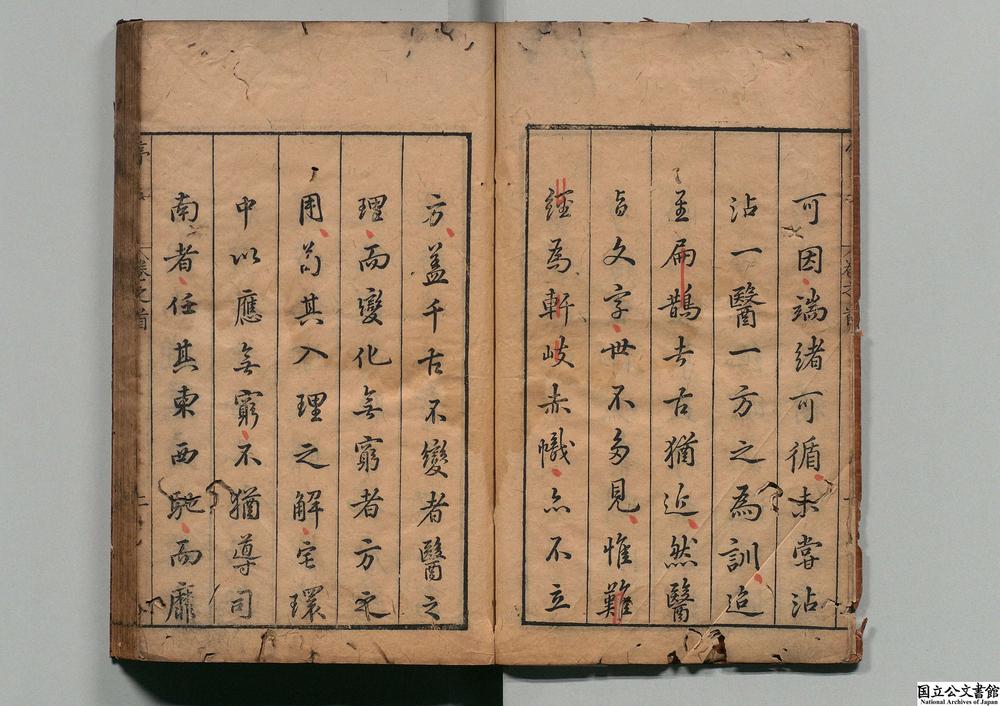 可因端緒可循未嘗沾
沾一醫一方之為訓迨
至扁鵲去古猶近然醫
旨文字世不多見惟難
經為軒岐赤幟亦不立
方蓋千古不變者醫之
理而變化無窮者方之
用苟其入理之解宅環
中以應無窮不猶導司
南者任其東西馳而靡
卷之首
国立公文書館
National Archives of Japan